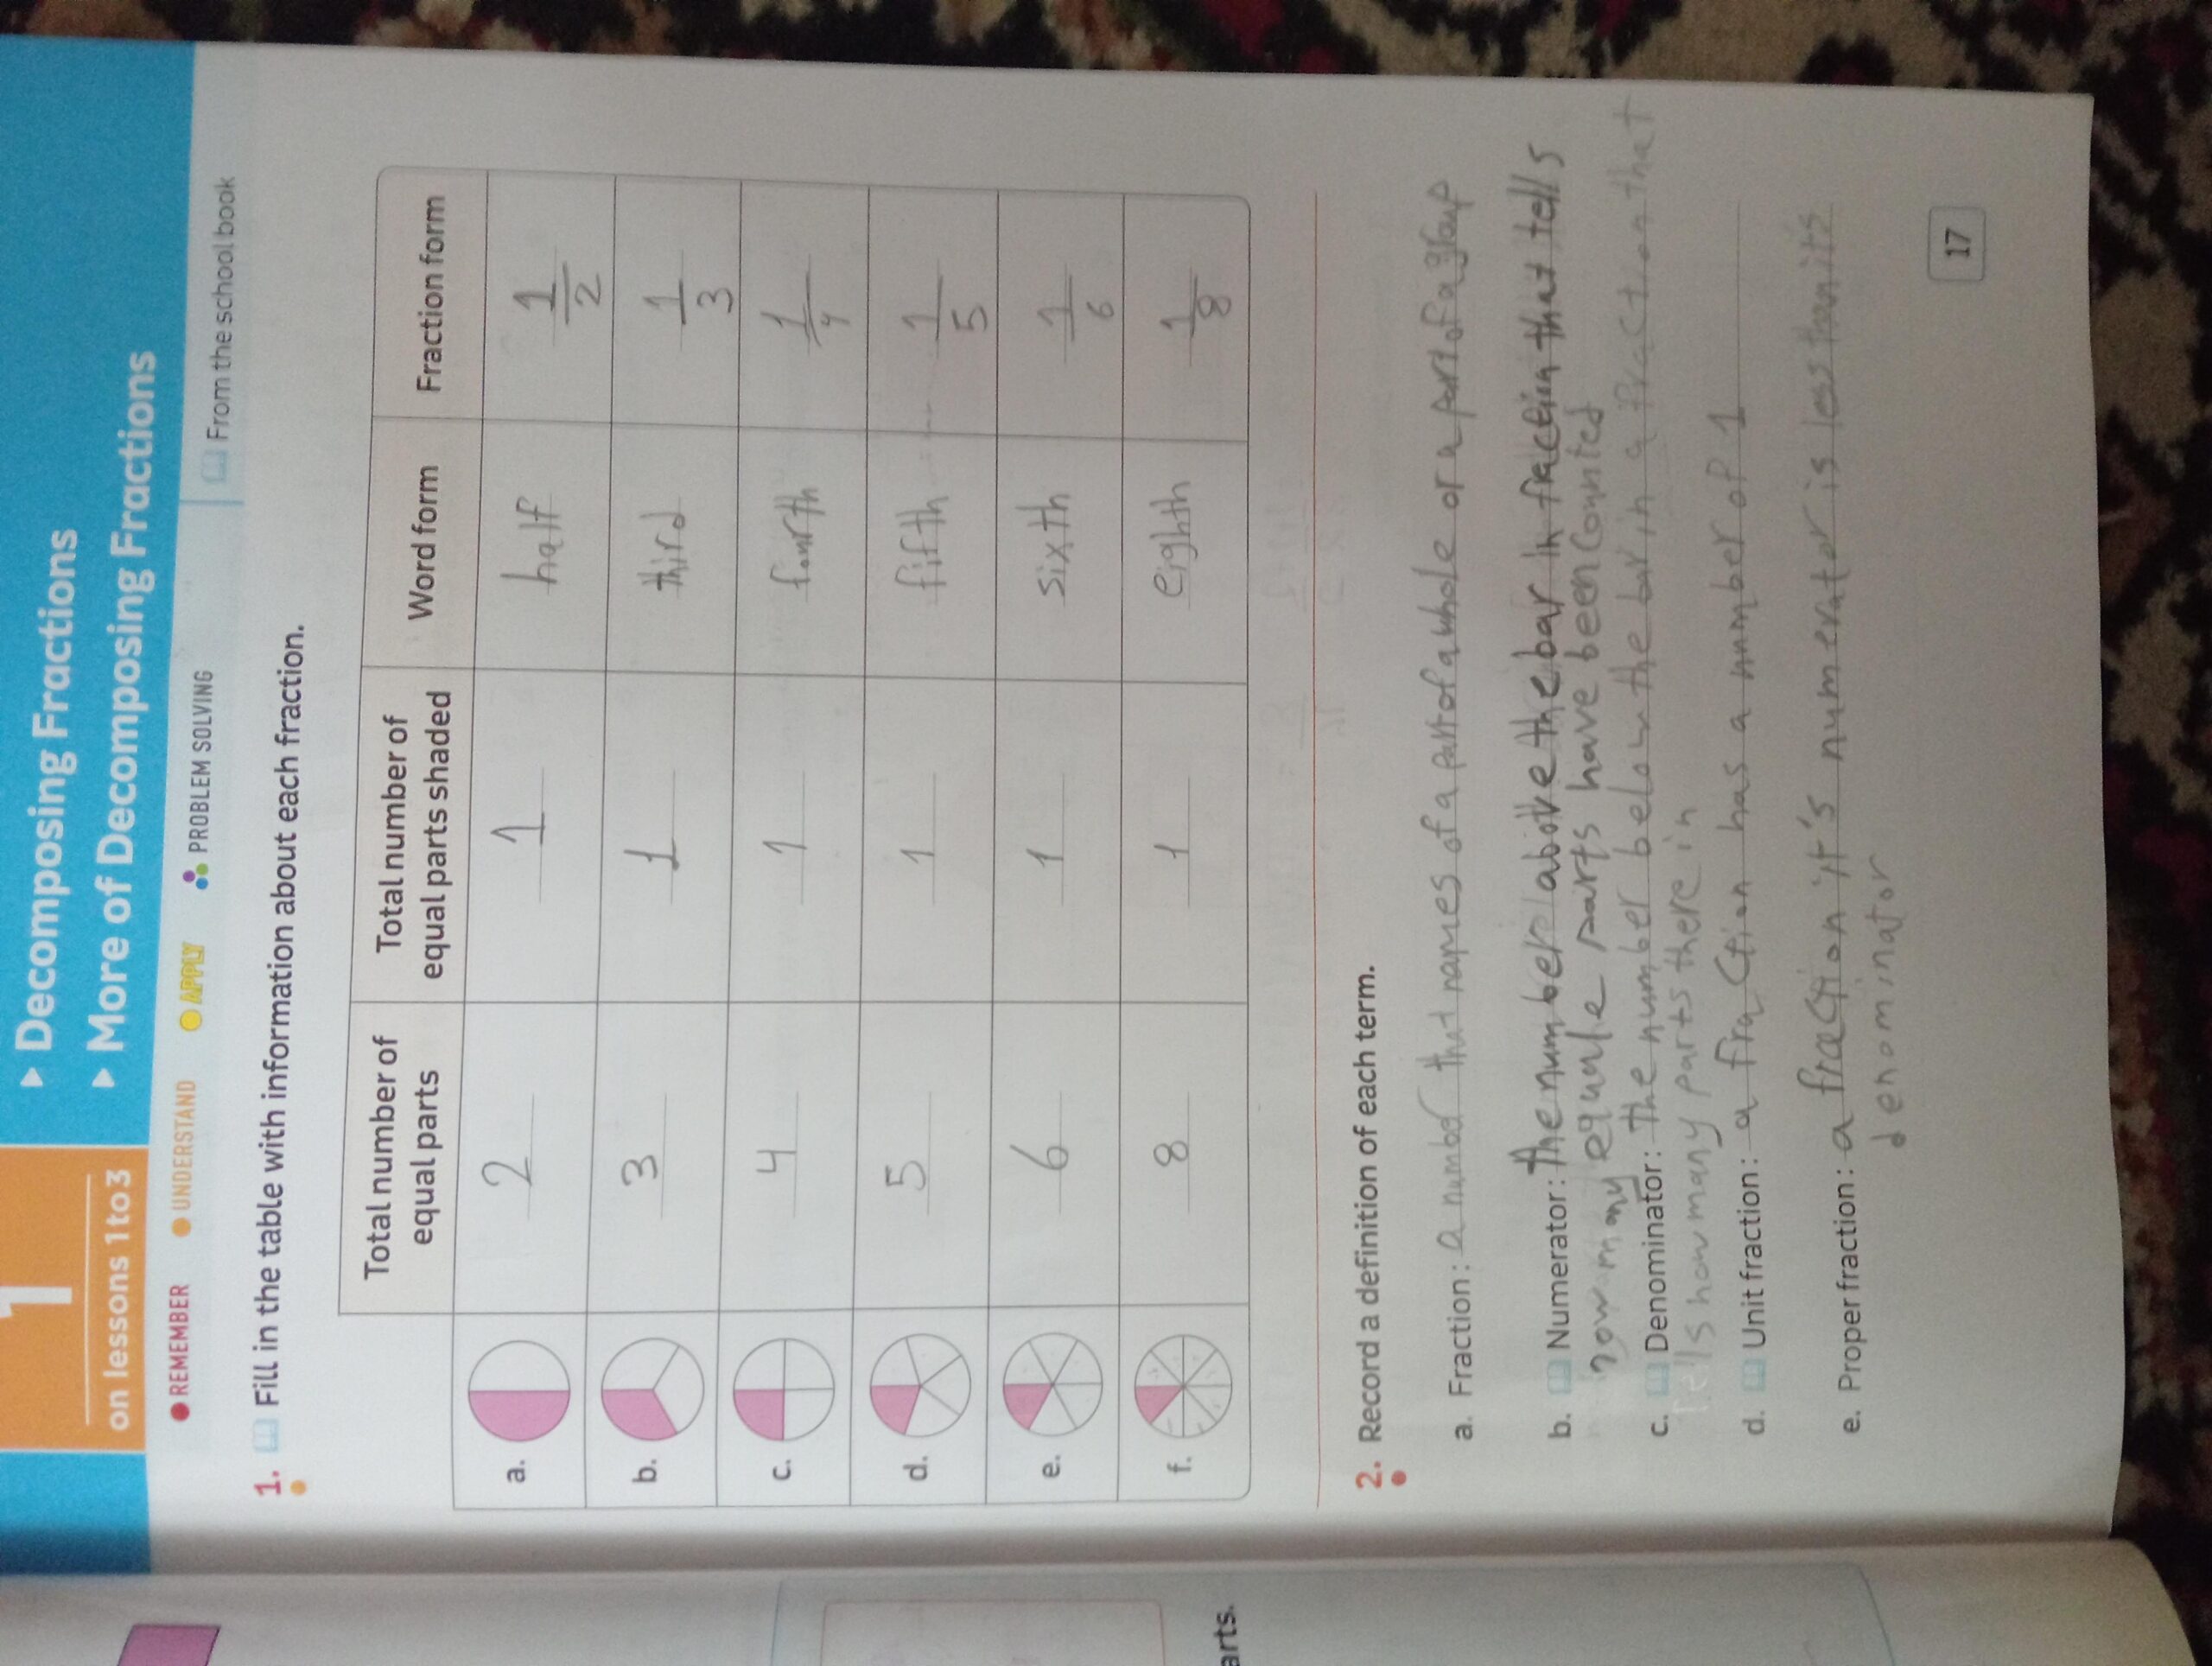 1
on lessons 1to3
▸ Decomposing Fractions
▸ More of Decomposing Fractions
REMEMBER UNDERSTAND APPLY PROBLEM SOLVING
From the school book
1. Fill in the table with information about each fraction.
Total number of equal parts Total number of equal parts shaded Word form Fraction form
a. 2 1 half 1/2
b. 3 1 third 1/3
c. 4 1 fourth 1/4
d. 5 1 fifth 1/5
e. 6 1 sixth 1/6
f. 8 1 eighth 1/8
2. Record a definition of each term.
a. Fraction: a number that names of a part of a whole or a part of a group
b. Numerator: the number above the bar in fraction that tells
how many equale parts have been counted
c. Denominator: the number below the bar in a fraction that
tells how many parts there in
d. Unit fraction: a fraction has a number of 1
e. Proper fraction: a fraction it's numerator is less than it's
denominator
17
arts.